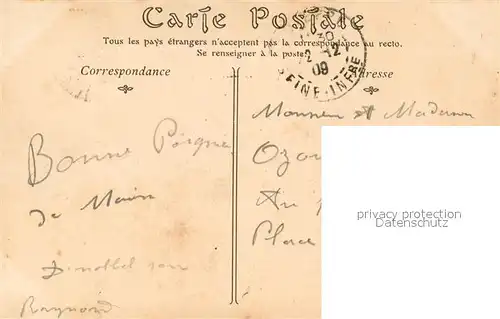 Carte Postale
Tous les pays étrangers n'acceptent pas la correspondance au recto.
Se renseigner à la poste.
Correspondance
Adresse
30
2 -12
09
SEINE-INFRE
Bonne Poignée
de Main
Raymond
Monsieur et Madame
Ozou
Au
Place
privacy protection
Datenschutz